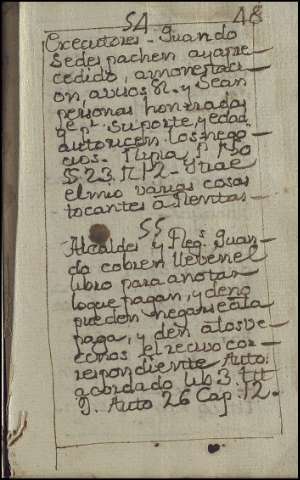 54 48
Executores - Quando
Sedespachen ayapre-
cedido, amonestaci-
on, avisos &. y Sean
personas honrradas
q.e p.r Suporte, y edad
autoricen los nego-
cios.
§ 23. n. 12 - trae
elmio varias cosas
tocantes a Rentas -
55
Alcaldes y Reg.s Quan-
do cobren lleven el
libro para anotar
loque pagan, y deno
pueden negarse ala
paga, y den alos ve-
cinos el recivo cor-
respondiente Auto.
acordado lib. 3. tit
9. Auto 26 Cap. 12.